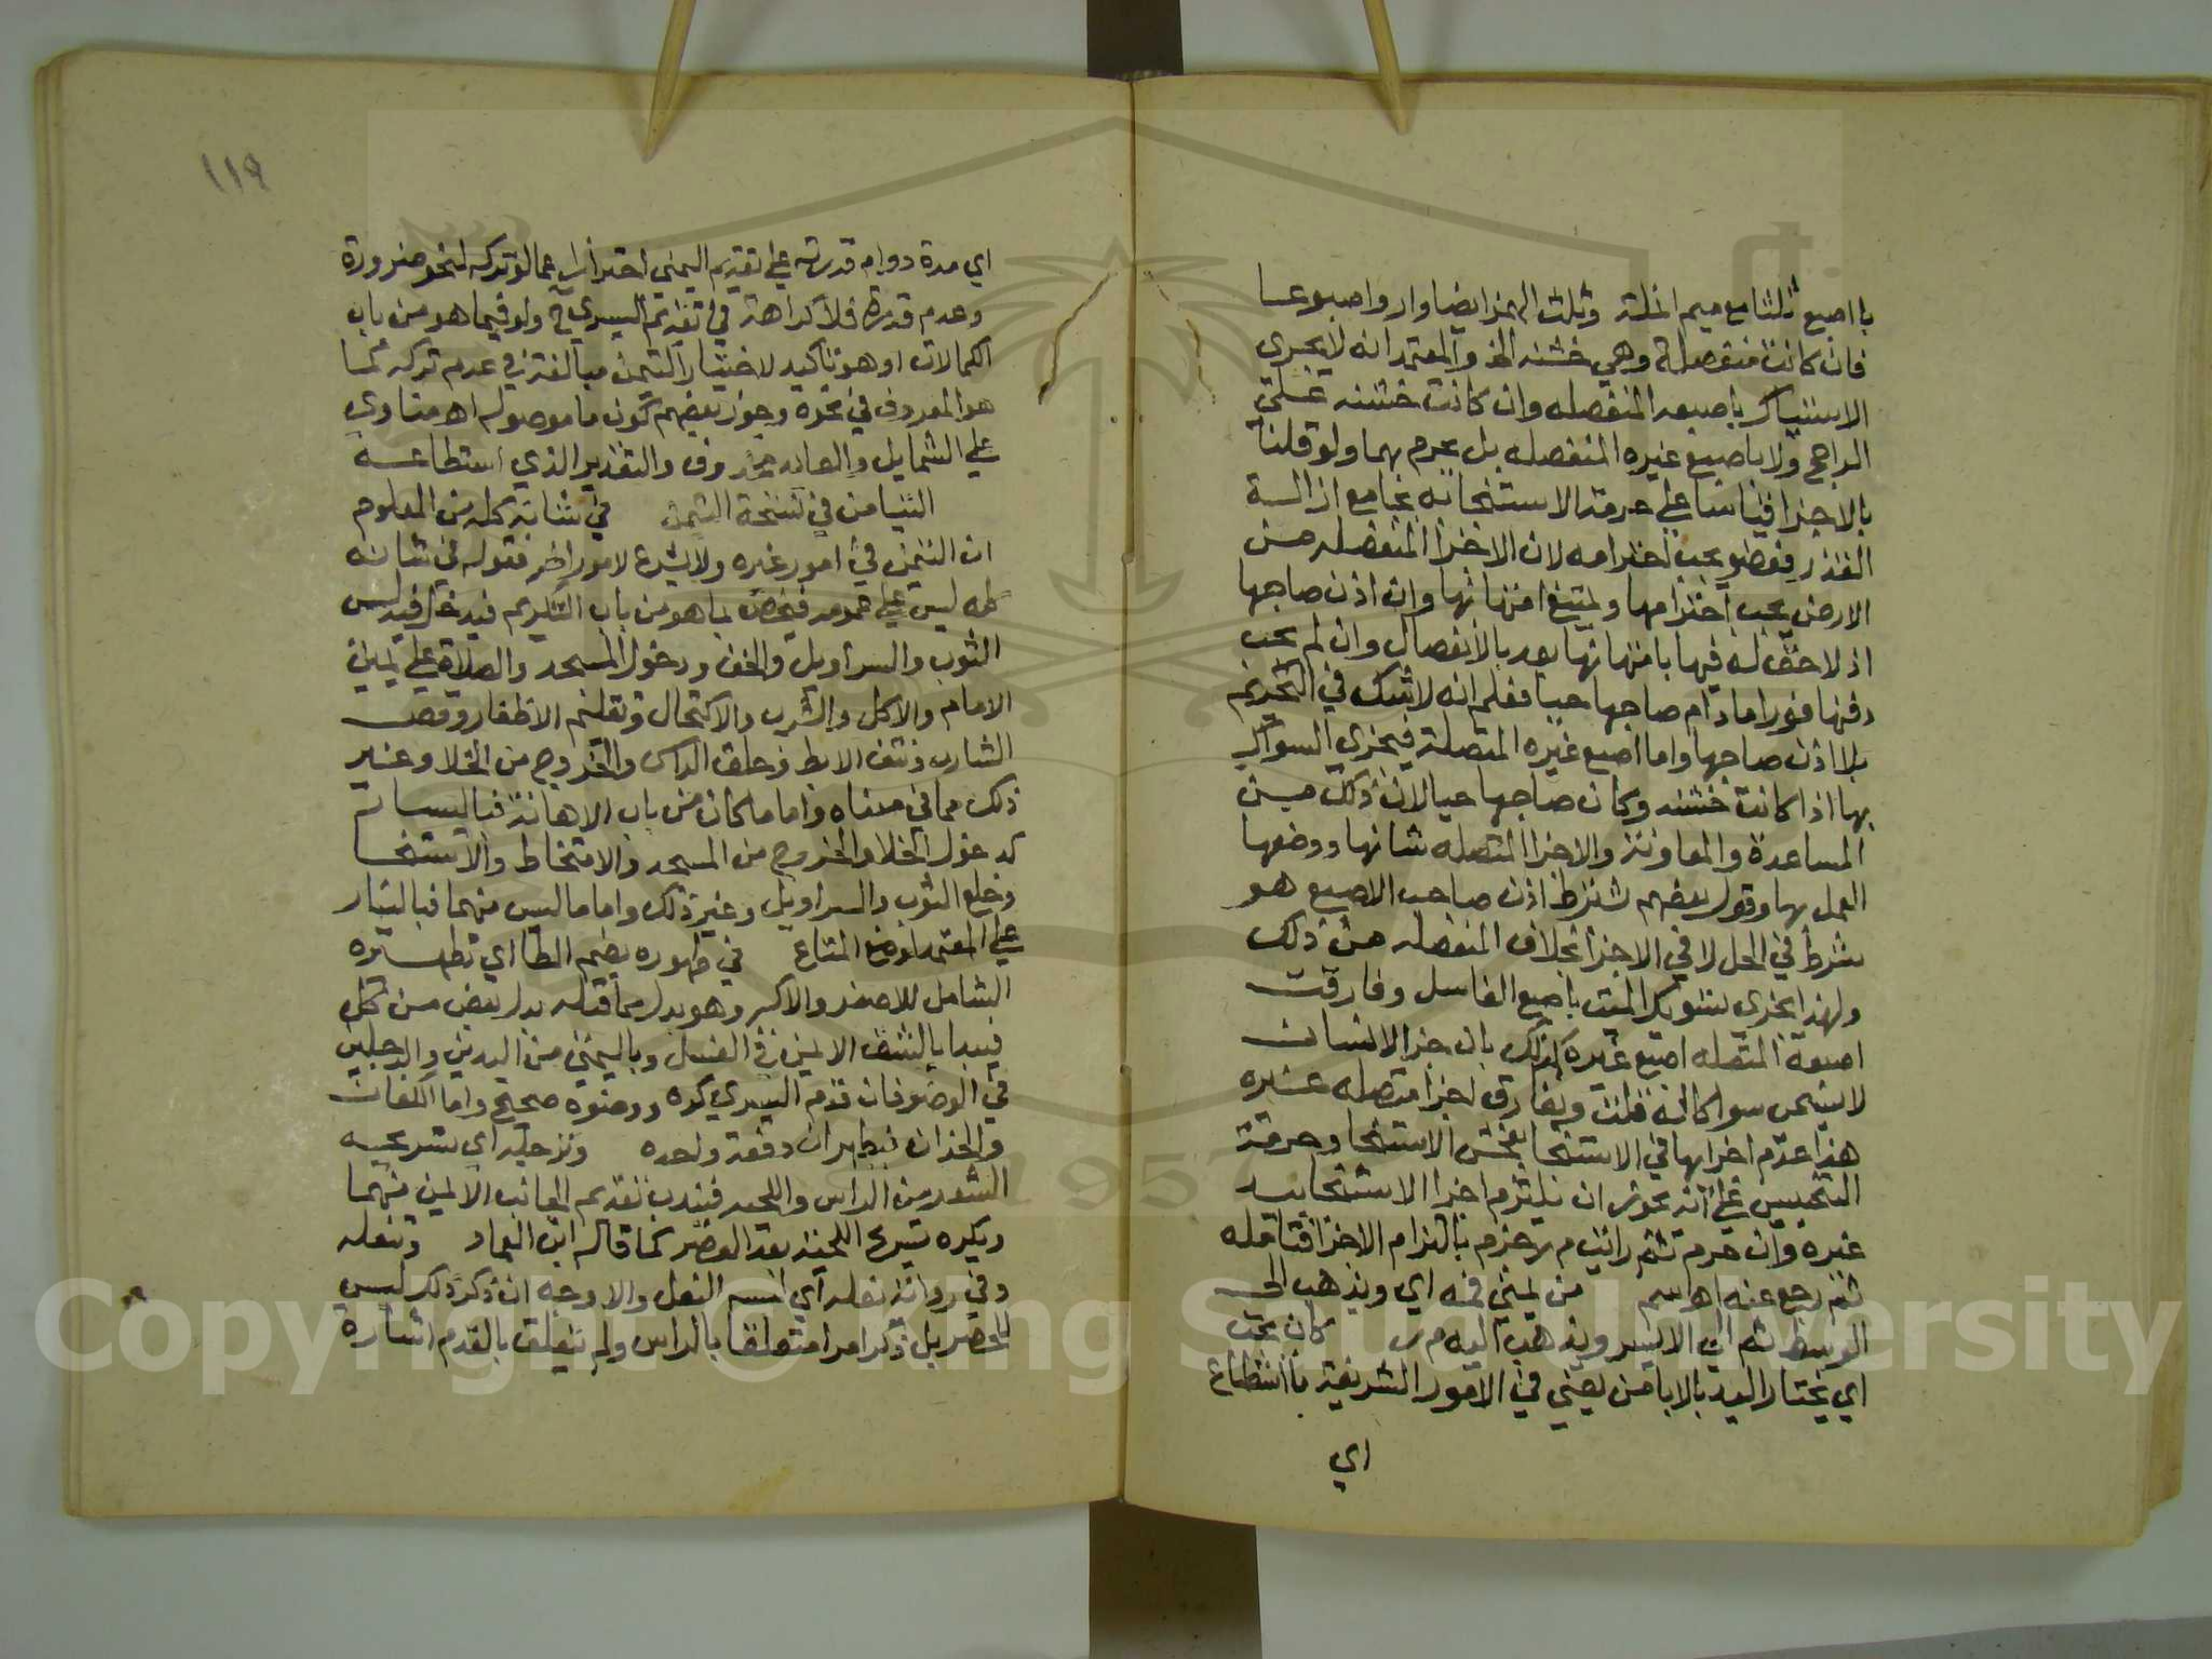 با اصبع ثلثا مع ميم انملة وثلث الهمز ايضا وارو اصبوعا
فان كانت منفصلة وهي خشنه الخ والمعتمد انه لا يجزى
الاستياك باصبعه المنفصله وان كانت خشنه على
الراجح ولا باصبع غيره المنفصله بل يحرم بهما ولو قلنا
بالاجزا قياسا على حرمة الاستنجا به بجامع ازالة
القذر بعضو يجب احترامه لان الاجزا المنفصله من
الارض يجب احترامها ويمتنع امتهانها وان اذن صاحبها
اذ لا حق له فيها بامتهانها بعد بالانفصال وان لم يجب
دفنها فورا ما دام صاحبها حيا فعلم انه لا شك في التحريم
بلا اذن صاحبها واما اصبع غيره المتصلة فيجزى السواك
بها اذا كانت خشنه وكان صاحبها حيا لان ذلك من
المساعدة والمعاونة والاجزا المتصله شانها ووضعها
العمل بها وقول بعضهم شترط اذن صاحب الاصبع هو
شرط في الحل لا في الاجزا بخلاف المنفصله من ذلك
ولهذا يجزى تسويك الميت باصبع الغاسل وفارقت
اصبعه المتصله اصبع غيره كذلك بان جزء الانسان
لا يسمى سواكا له قلت ويفارق اجزا متصله غيره
هنا عدم اجزايها في الاستنجا بفحش الاستنجا وحرمة
التنجيس على انه يجوز ان يلتزم اجزا الاستنجا بيد
غيره وان حرم ثم رايت م ر جزم بالتزام الاجزا فتامله
ثم رجع عنه اه سم من يمنى فمه اي ويذهب الى
الوسط ثم الى الايسر ويذهب اليه م ر كان يحب
اي يختار اليد بالايامن يعني في الامور الشريفة ما استطاع
اي
١١٩
اي مدة دوام قدرته على تقديم اليمنى احترازا عما لو تركه لنحو ضرورة
وعدم قدرة فلا كراهة في تقديم اليسرى ح ولو فيما هو من باب
الكمالات او هو تاكيد لاختيار التيمن مبالغة في عدم تركه كما
هو المعروف في نحوه وجوز بعضهم كون ما موصوله اه مناوي
على الشمايل والعايد محذوف والتقدير الذي استطاعه
التيامن في نسخة التيمن في شانه كله من المعلوم
ان التيمن في امور غيره ولا يشرع لامور اخر فقوله في شانه
كله ليس على عمومه فيخص بما هو من باب التكريم فيدخل فيه لبس
الثوب والسراويل والخف ودخول المسجد والصلاة على يمين
الامام والاكل والشرب والاكتحال وتقليم الاظفار وقص
الشارب ونتف الابط وحلق الراس والخروج من الخلا وغير
ذلك مما في معناه واما ما كان من باب الاهانة فباليسار
كدخول الخلا والخروج من المسجد والامتخاط والاستنجا
وخلع الثوب والسراويل وغير ذلك واما ما ليس منهما فباليسار
على المعتمد لوضع المتاع في طهوره بضم الطا اي تطهيره
الشامل للاصغر والاكبر وهو بدل مما قبله بدل بعض من كل
فيبدا بالشق الايمن في الغسل وباليمنى من اليدين والرجلين
في الوضو فان قدم اليسرى كره ووضوه صحيح واما الكفان
والخدان فيطهران دفعة واحده وترجله اي تسريحه
الشعر من الراس واللحيه فيندب تقديم الجانب الايمن منهما
ويكره تسريح اللحية بعد العصر كما قاله ابن العماد وتنعله
وفي رواية نعله اي لبسه النعل والاوجه ان ذكر ذلك ليس
للحصر بل ذكر امرا متعلقا بالراس ولم يتعلق بالقدم اشارة
Copyright © King Saud University
1957